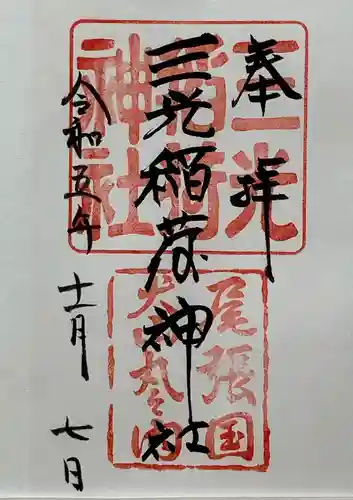 奉拝
三光稲荷神社
令和五年
十一月
七日
三光
稲荷
神社
尾張国
犬山丸の内